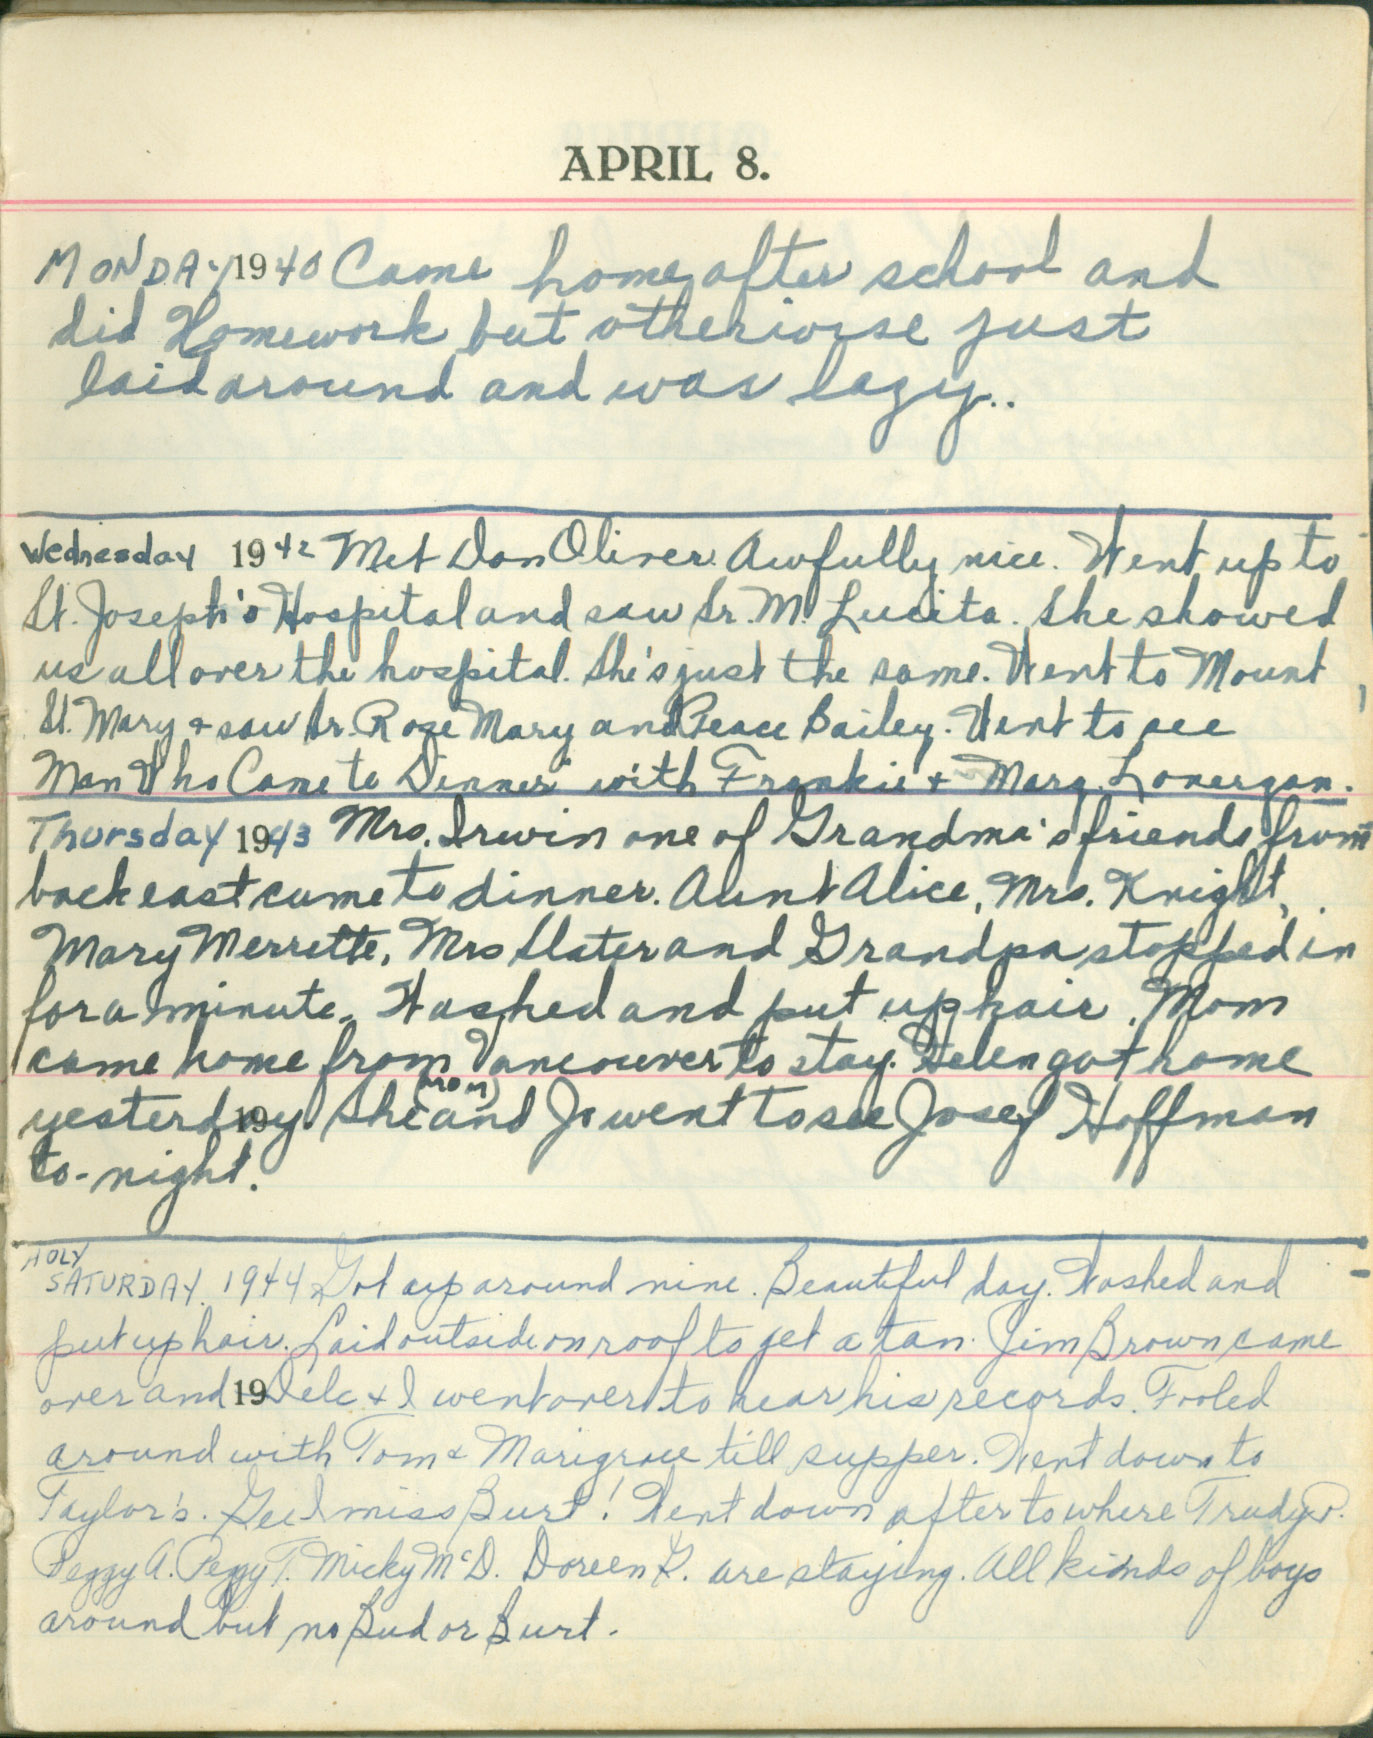 APRIL 8.
MONDAY 1940 Came home after school and
did Homework but otherwise just
laid around and was lazy..
Wednesday 1942 Met Don Oliver. Awfully nice. Went up to
St. Joseph's Hospital and saw Sr. M. Lucita. She showed
us all over the hospital. She's just the same. Went to Mount
St. Mary + saw Sr. Rose Mary and Peace Bailey. Went to see
Man Who Came to Dinner with Frankie + Marg. Lonergan.
Thursday 1943 Mrs. Irwin one of Grandma's friends from
back east came to dinner. Aunt Alice, Mrs. Knight,
Mary Merrette, Mrs Slater and Grandpa stopped in
for a minute. Washed and put up hair. Mom
came home from Vancouver to stay. Helen got home
yesterday. She (mom) and Jo went to see Josef Hoffman
19
to-night.
HOLY
SATURDAY. 1944 Got up around nine. Beautiful day. Washed and
put up hair. Laid outside on roof to get a tan. Jim Brown came
over and 19 Dele + I went over to hear his records. Fooled
around with Tom + Marigrace till supper. Went down to
Taylor's. Gee I miss Burt! Went down after to where Trudy P.
Peggy A. Pegy T. Micky McD. Doreen are staying. All kinds of boys
around but no Bud or Burt.